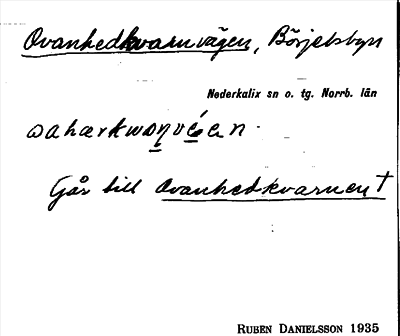 Ovanhedkvarnvägen, Börjelsbyn
Nederkalix sn o. tg. Norrb. län
Går till Ovanhedkvarnen †
RUBEN DANIELSSON 1935